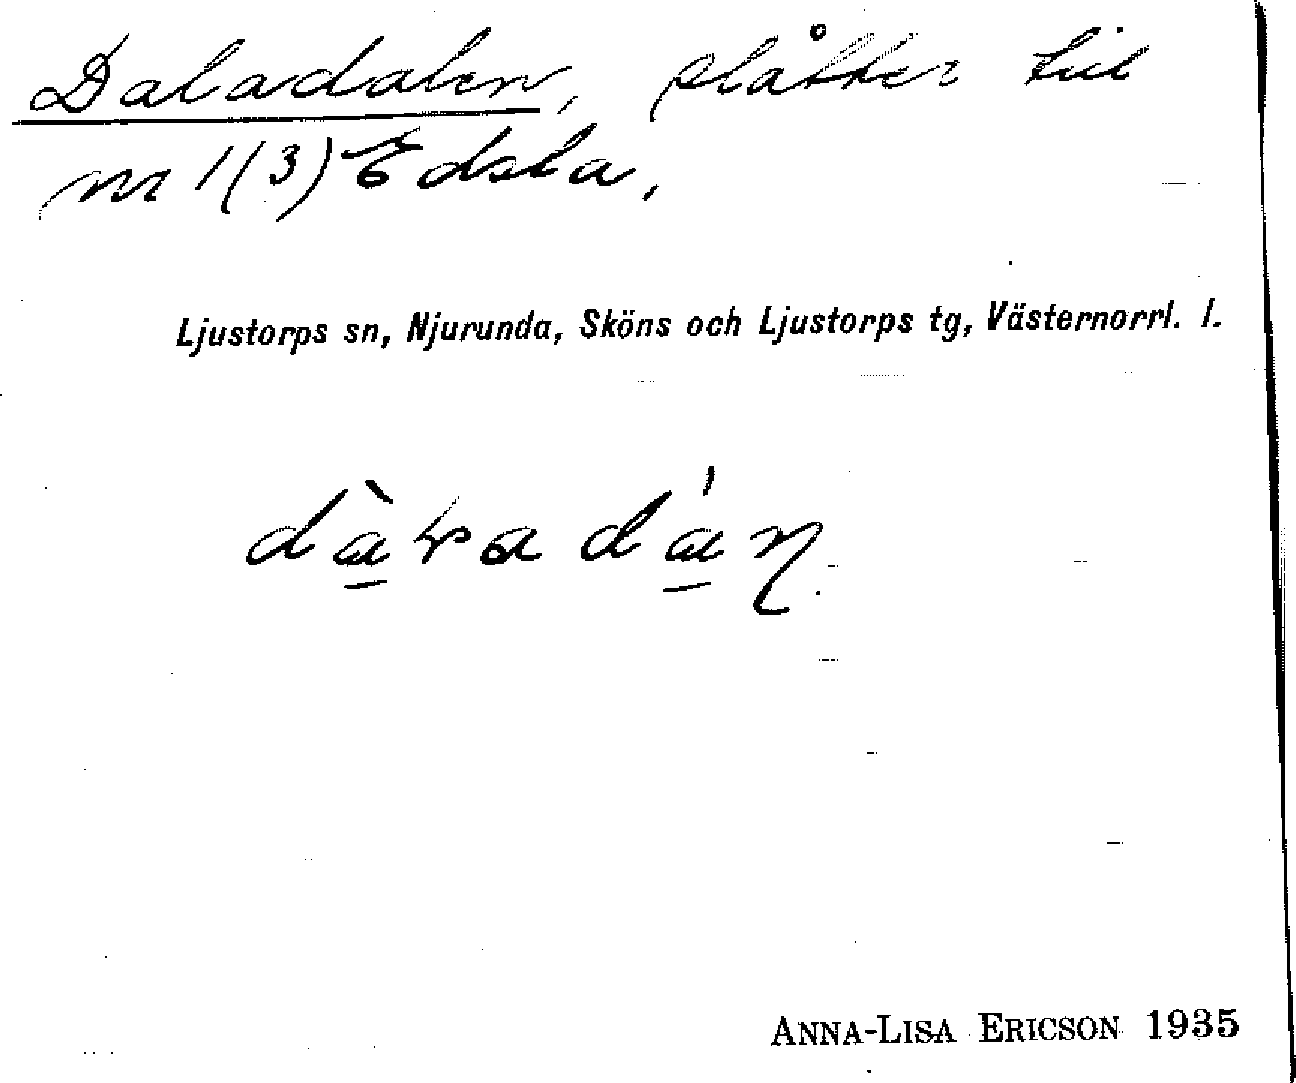 Daladalen, slåtter till
nr 1(3) Edsta,
Ljustorps sn, Njurunda, Sköns och Ljustorps tg, Västernorrl. l.
ANNA-LISA ERICSON 1935